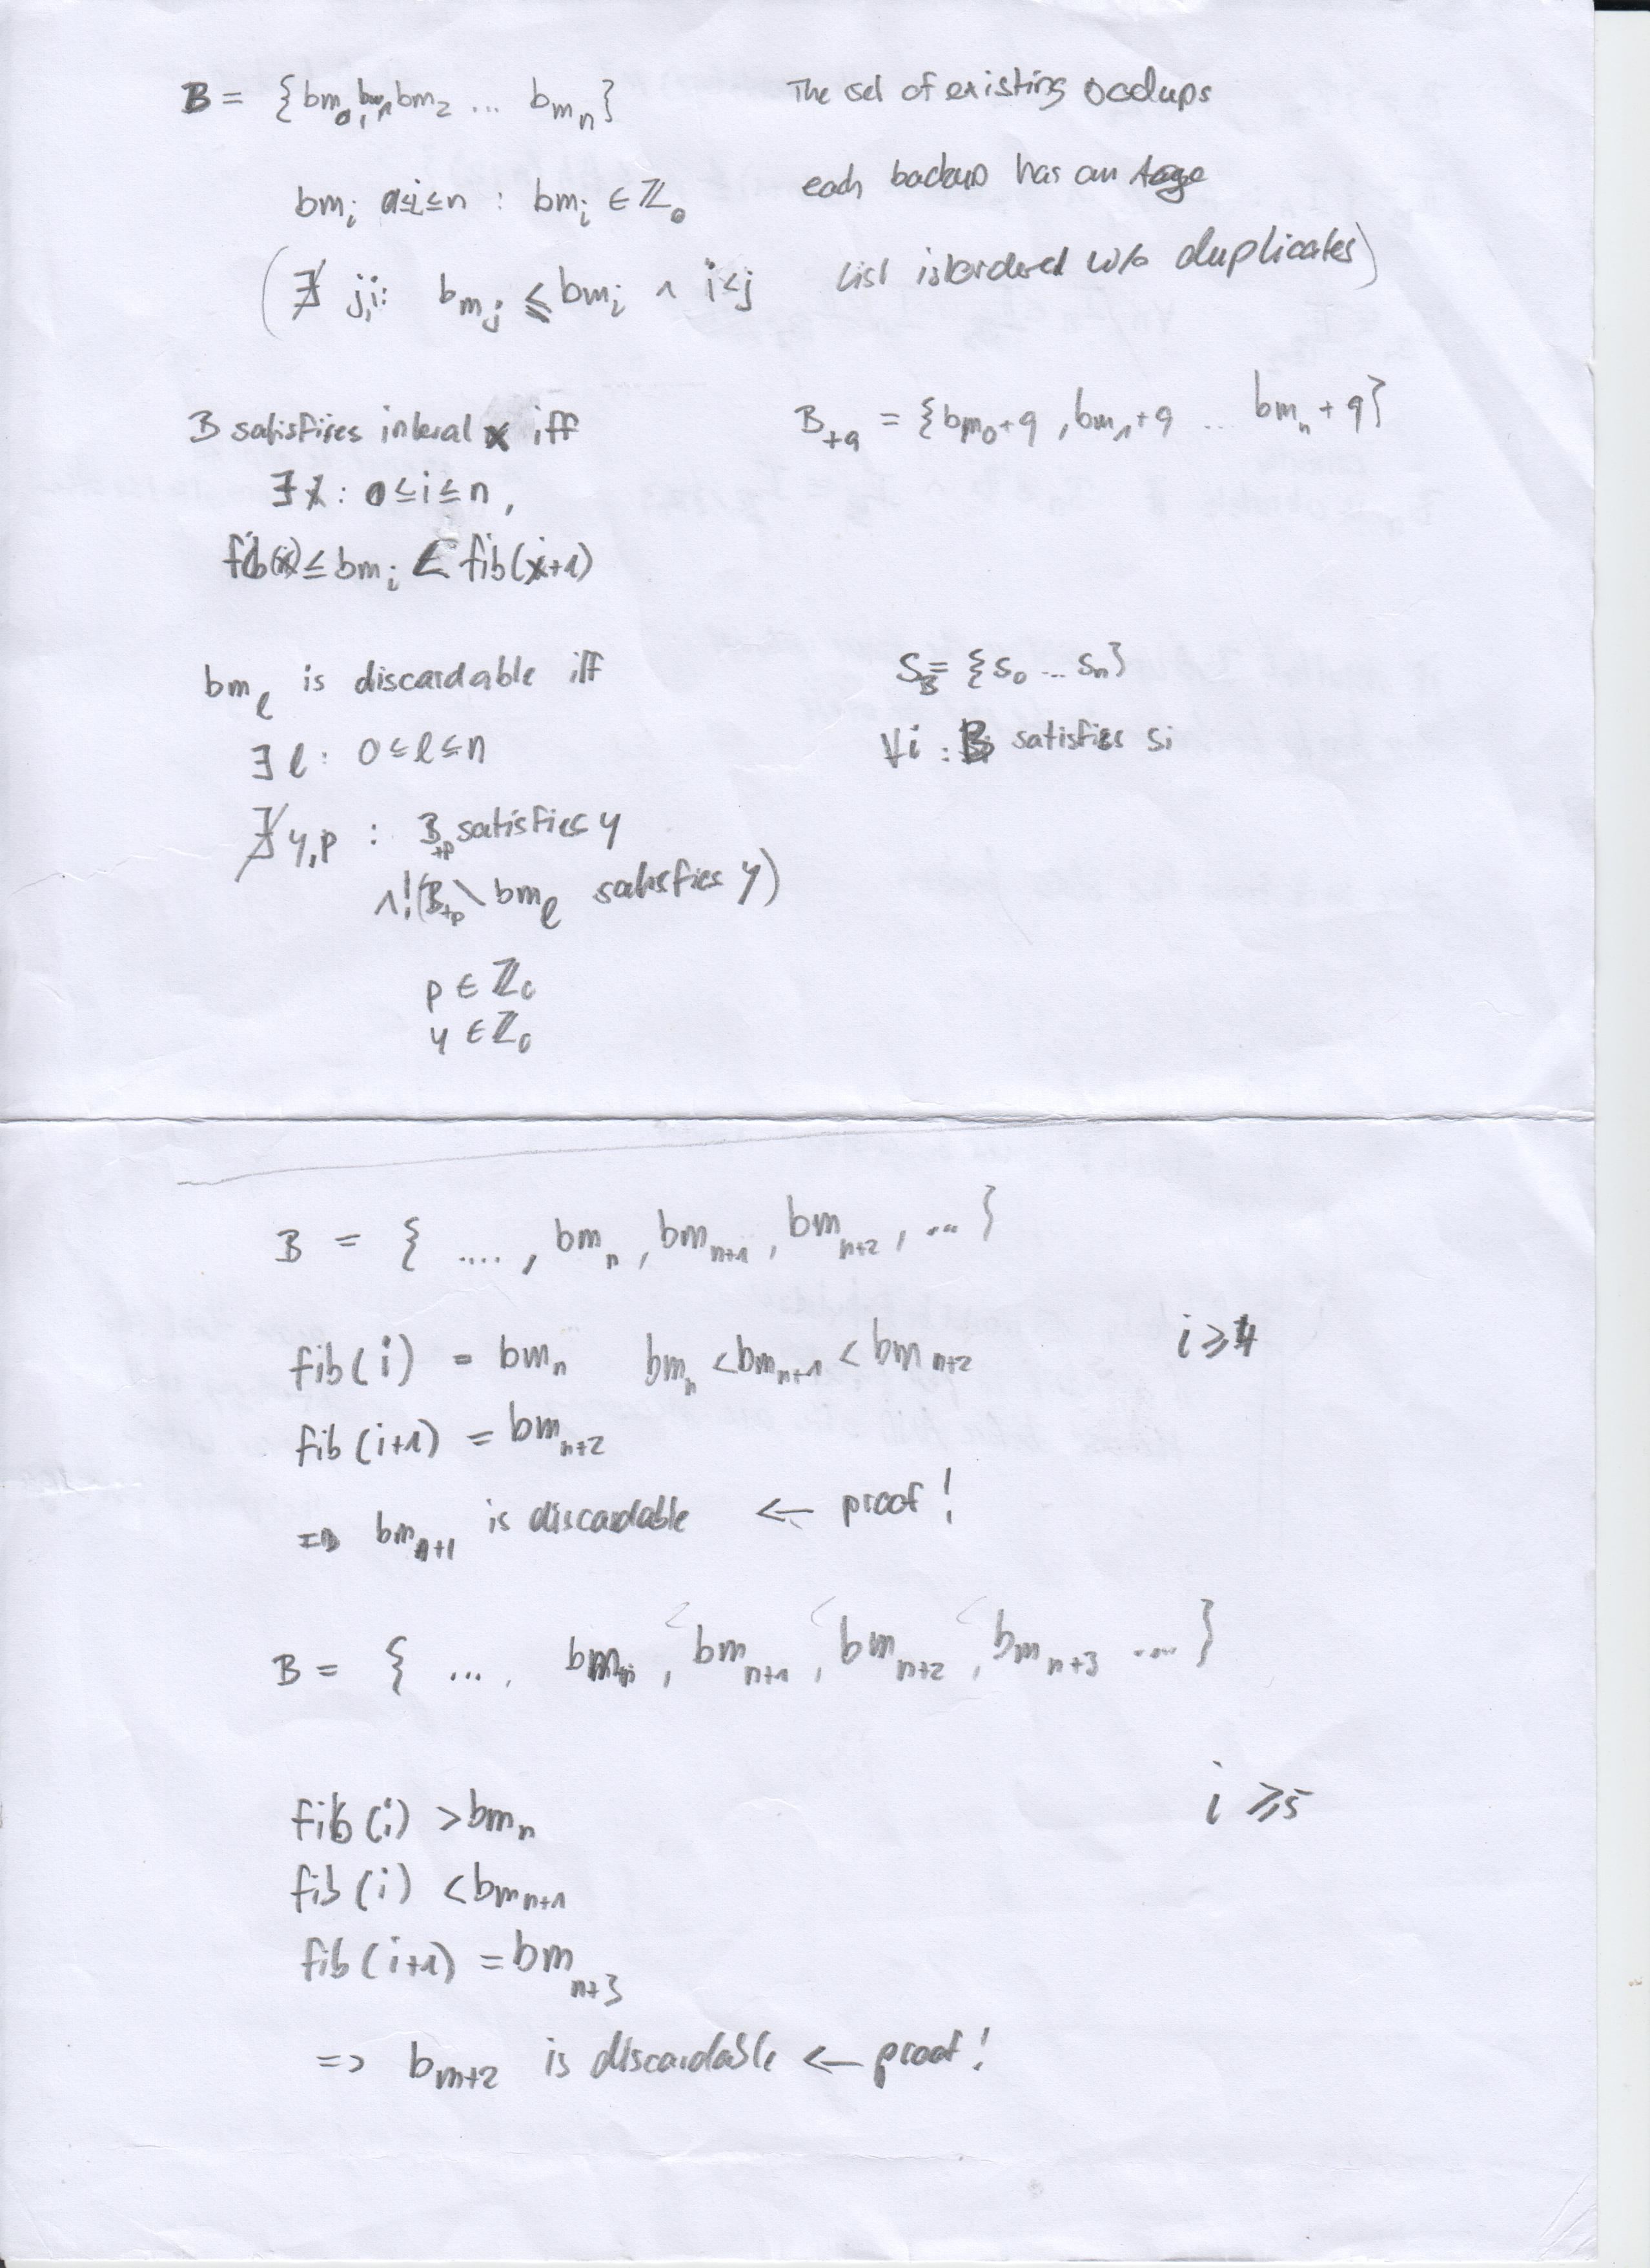 B = {bm₀, bm₁ bm₂ ... bmₙ} The set of existing backups
bmᵢ 0≤i≤n : bmᵢ ∈ ℤ₀ each backup has an age
(∄ j,i: bmⱼ ≤ bmᵢ ∧ i<j List is ordered w/o duplicates)
B satisfires interal x iff B₊q = {bm₀+q, bm₁+q .. bmₙ+q}
∃ i : 0≤i≤n,
fib(x) ≤ bmᵢ < fib(x+1)
bm_ℓ is discardable iff S_B = {s₀ ... sₙ}
∃ ℓ: 0≤ℓ≤n ∀i : B satisfies si
∄ y,p : B₊p satisfies y
∧!(B₊p \ bm_ℓ satisfies y)
p ∈ ℤ₀
y ∈ ℤ₀
B = { ...., bmₙ, bmₙ₊₁, bmₙ₊₂, ... }
fib(i) = bmₙ bmₙ < bmₙ₊₁ < bmₙ₊₂ i ≥ 4
fib(i+1) = bmₙ₊₂
=> bmₙ₊₁ is discardable ← proof!
B = { ... , bmₙ < , bmₙ₊₁ < , bmₙ₊₂ < , bmₙ₊₃ .... }
fib(i) > bmₙ i ≥ 5
fib(i) < bmₙ₊₁
fib(i+1) = bmₙ₊₃
=> b_m+2 is discardable ← proof!